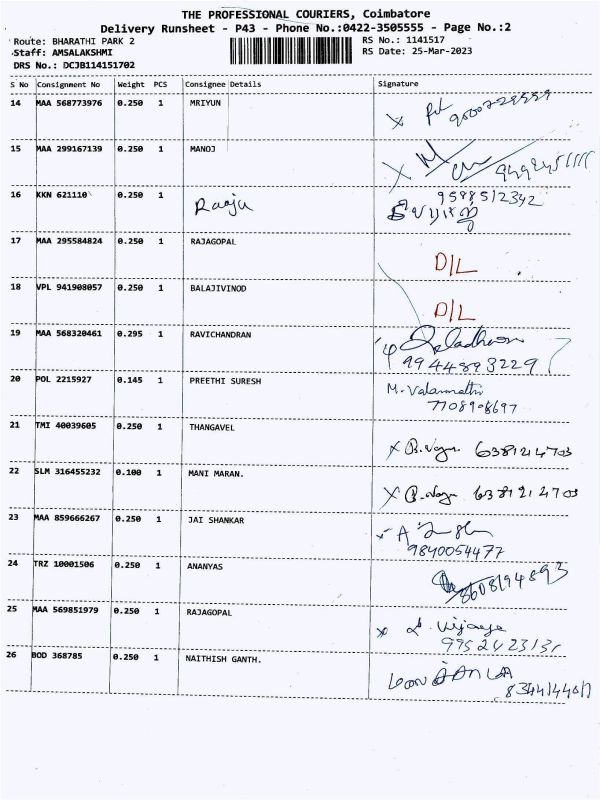 THE PROFESSIONAL COURIERS, Coimbatore
Delivery Runsheet - P43 - Phone No.:0422-3505555 - Page No.:2
Route: BHARATHI PARK 2 RS No.: 1141517
Staff: AMSALAKSHMI RS Date: 25-Mar-2023
DRS No.: DCJB114151702
S No Consignment No Weight PCS Consignee Details Signature
14 MAA 568773976 0.250 1 MRIYUN
15 MAA 299167139 0.250 1 MANOJ
16 KKN 621110 0.250 1 Raaju 9588512342
17 MAA 295584824 0.250 1 RAJAGOPAL D/L
18 VPL 941908057 0.250 1 BALAJIVINOD D/L
19 MAA 568320461 0.295 1 RAVICHANDRAN
9944893229
20 POL 2215927 0.145 1 PREETHI SURESH M. Valarmathi
7708908697
21 TMI 40039605 0.250 1 THANGAVEL 6381214703
22 SLM 316455232 0.100 1 MANI MARAN. 6381214703
23 MAA 859666267 0.250 1 JAI SHANKAR
9840054477
24 TRZ 10001506 0.250 1 ANANYAS 8608194893
25 MAA 569851979 0.250 1 RAJAGOPAL
26 BOD 368785 0.250 1 NAITHISH GANTH.